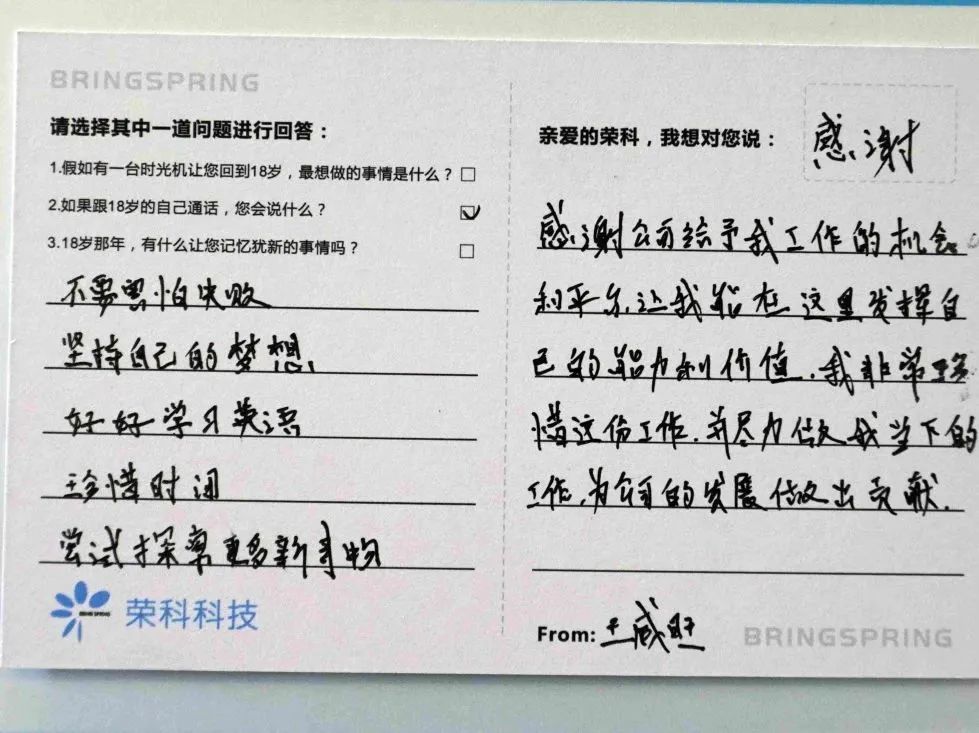 BRINGSPRING
请选择其中一道问题进行回答：
1.假如有一台时光机让您回到18岁，最想做的事情是什么？
2.如果跟18岁的自己通话，您会说什么？
3.18岁那年，有什么让您记忆犹新的事情吗？
不需要怕失败
坚持自己的梦想
好好学习英语
珍惜时间
尝试探索更多新事物
BRING SPRING
荣科科技
亲爱的荣科，我想对您说：
感谢
感谢公司给予我工作的机会
和平台,让我能在这里发挥自
己的能力和价值.我非常珍
惜这份工作.并尽力做好我当下的
工作,为公司的发展做出贡献.
From: 王威
BRINGSPRING